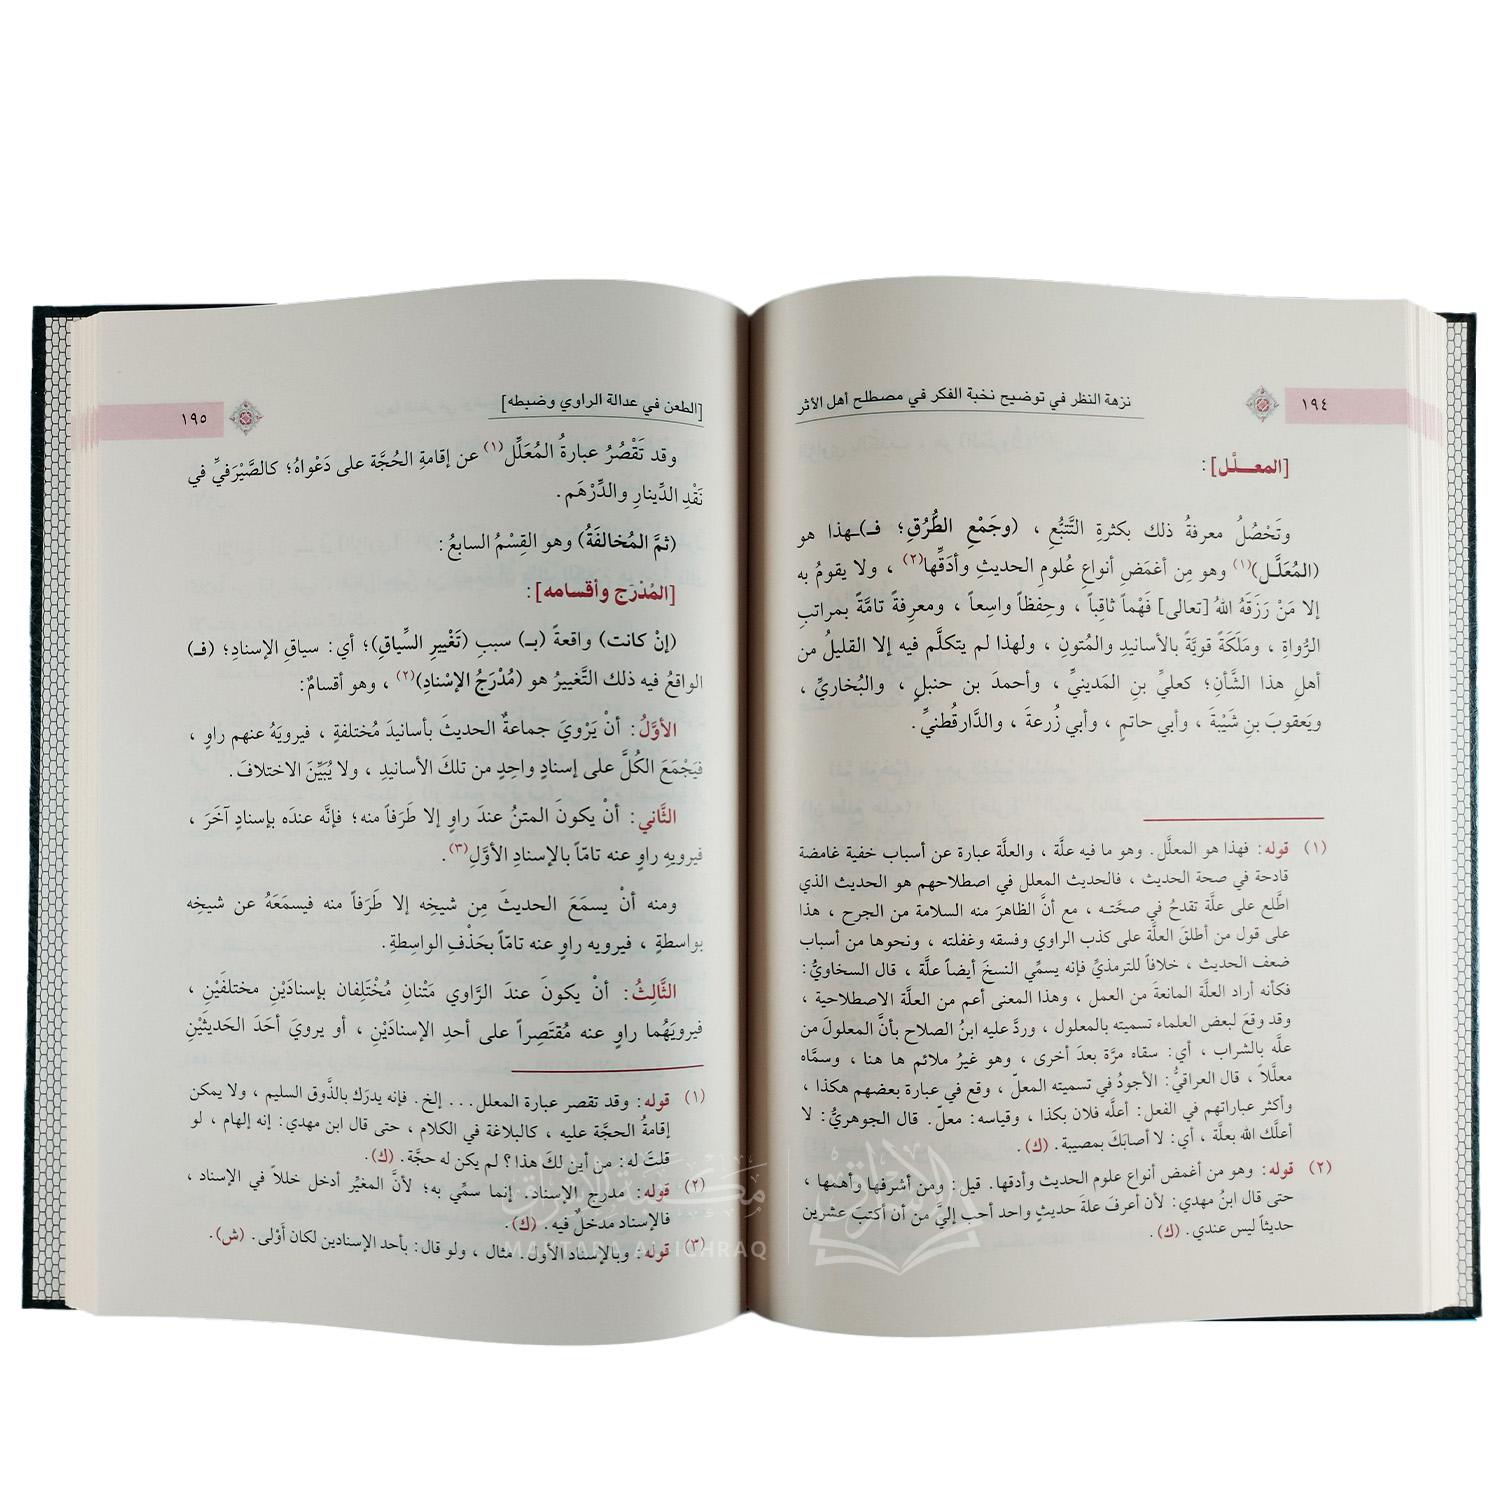 ١٩٤
نزهة النظر في توضيح نخبة الفكر في مصطلح أهل الأثر
[المعـــلَّل] :
وتَحْصُلُ معرفةُ ذلك بكثرةِ التَّتبُّعِ ، (وجَمْعِ الطُّرُقِ ؛ فـ)ـهذا هو
(المُعَلَّـل)(١) وهو مِن أغمَضِ أنواعِ عُلومِ الحديثِ وأدَقِّها(٢) ، ولا يقومُ به
إلا مَنْ رَزَقَهُ اللهُ [تعالى] فَهْماً ثاقِباً ، وحِفظاً واسِعاً ، ومعرِفةً تامَّةً بمراتبِ
الرُّواةِ ، ومَلَكَةً قويَّةً بالأسانيدِ والمُتونِ ، ولهذا لم يتكلَّم فيه إلا القليلُ من
أهلِ هذا الشَّأنِ ؛ كعليِّ بنِ المَدينيِّ ، وأحمدَ بن حنبلٍ ، والبُخاريِّ ،
ويَعقوبَ بنِ شَيْبَةَ ، وأبي حاتمٍ ، وأبي زُرعةَ ، والدَّارقُطنيِّ .
(١) قوله : فهذا هو المعلَّل . وهو ما فيه علَّة ، والعلَّة عبارة عن أسباب خفية غامضة
قادحة في صحة الحديث ، فالحديث المعلل في اصطلاحهم هو الحديث الذي
اطَّلع على علَّة تقدحُ في صحَّتـه ، مع أنَّ الظاهرَ منه السلامة من الجرح ، هذا
على قول من أطلقَ العلَّة على كذب الراوي وفسقه وغفلته ، ونحوها من أسباب
ضعف الحديث ، خلافاً للترمذيِّ فإنه يسمِّي النسخَ أيضاً علَّة ، قال السخاويُّ :
فكأنه أراد العلَّة المانعةَ من العمل ، وهذا المعنى أعم من العلَّة الاصطلاحية ،
وقد وقعَ لبعض العلماء تسميته بالمعلول ، وردَّ عليه ابنُ الصلاح بأنَّ المعلولَ من
علَّه بالشراب ، أي : سقاه مرَّة بعدَ أخرى ، وهو غيرُ ملائم ها هنا ، وسمَّاه
معلَّلاً ، قال العراقيُّ : الأجودُ في تسميته المعلّ ، وقع في عبارة بعضهم هكذا ،
وأكثر عباراتهم في الفعل : أعلَّه فلان بكذا ، وقياسه : معلّ . قال الجوهريُّ : لا
أعلَّك الله بعلَّة ، أي : لا أصابَكَ بمصيبة . (ك) .
(٢) قوله : وهو من أغمض أنواع علوم الحديث وأدقها . قيل : ومن أشرفها وأهمها ،
حتى قال ابنُ مهدي : لأن أعرفَ علةَ حديثٍ واحد أحب إليَّ من أن أكتبَ عشرين
حديثاً ليس عندي . (ك) .
[الطعن في عدالة الراوي وضبطه]
١٩٥
وقد تَقْصُرُ عبارةُ المُعَلِّل(١) عن إقامةِ الحُجَّة على دَعْواهُ ؛ كالصَّيْرَفيِّ في
نَقْدِ الدِّينارِ والدِّرْهَم .
(ثمَّ المُخالفَةُ) وهو القِسْمُ السابعُ :
[المُدْرَج وأقسامه] :
(إنْ كانت) واقعةً (بـ) سببِ (تَغْييرِ السِّياقِ) ؛ أي : سياقِ الإسنادِ ؛ (فـ)
الواقعُ فيه ذلك التَّغييرُ هو (مُدْرَجُ الإسْنادِ)(٢) ، وهو أقسامٌ :
الأوَّلُ : أنْ يَرْويَ جماعةٌ الحديثَ بأسانيدَ مُختلفةٍ ، فيرويَهُ عنهم راوٍ ،
فيَجْمَعَ الكُلَّ على إسنادٍ واحِدٍ من تلكَ الأسانيدِ ، ولا يُبَيِّنَ الاختلافَ .
الثَّاني : أنْ يكونَ المتنُ عندَ راوٍ إلا طَرَفاً منه ؛ فإنَّه عندَه بإسنادٍ آخَرَ ،
فيرويهِ راوٍ عنه تامّاً بالإسنادِ الأوَّلِ(٣) .
ومنه أنْ يسمَعَ الحديثَ مِن شيخِه إلا طَرَفاً منه فيسمَعَهُ عن شيخِه
بواسطةٍ ، فيرويه راوٍ عنه تامّاً بحَذْفِ الواسِطِةِ .
الثَّالِثُ : أنْ يكونَ عندَ الرَّاوي مَتْنانِ مُخْتَلِفان بإسنادَيْنِ مختلفَيْنِ ،
فيرويَهُما راوٍ عنه مُقتَصِراً على أحدِ الإسنادَيْنِ ، أو يرويَ أحَدَ الحَديثَيْنِ
(١) قوله : وقد تقصر عبارة المعلل . . . إلخ . فإنه يدرَك بالذَّوق السليم ، ولا يمكن
إقامةُ الحجَّة عليه ، كالبلاغة في الكلام ، حتى قال ابن مهدي : إنه إلهام ، لو
قلتَ له : من أين لكَ هذا ؟ لم يكن له حجَّة . (ك) .
(٢) قوله : مدرج الإسناد . إنما سمِّي به ؛ لأنَّ المغيِّر أدخل خللاً في الإسناد ،
فالإسناد مدخلٌ فيه . (ك) .
(٣) قوله : وبالإسناد الأول . مثال ، ولو قال : بأحد الإسنادين لكان أَوْلى . (ش) .
مكتبة الإشراق
MAKTABA AL-ICHRAQ
الإشراق